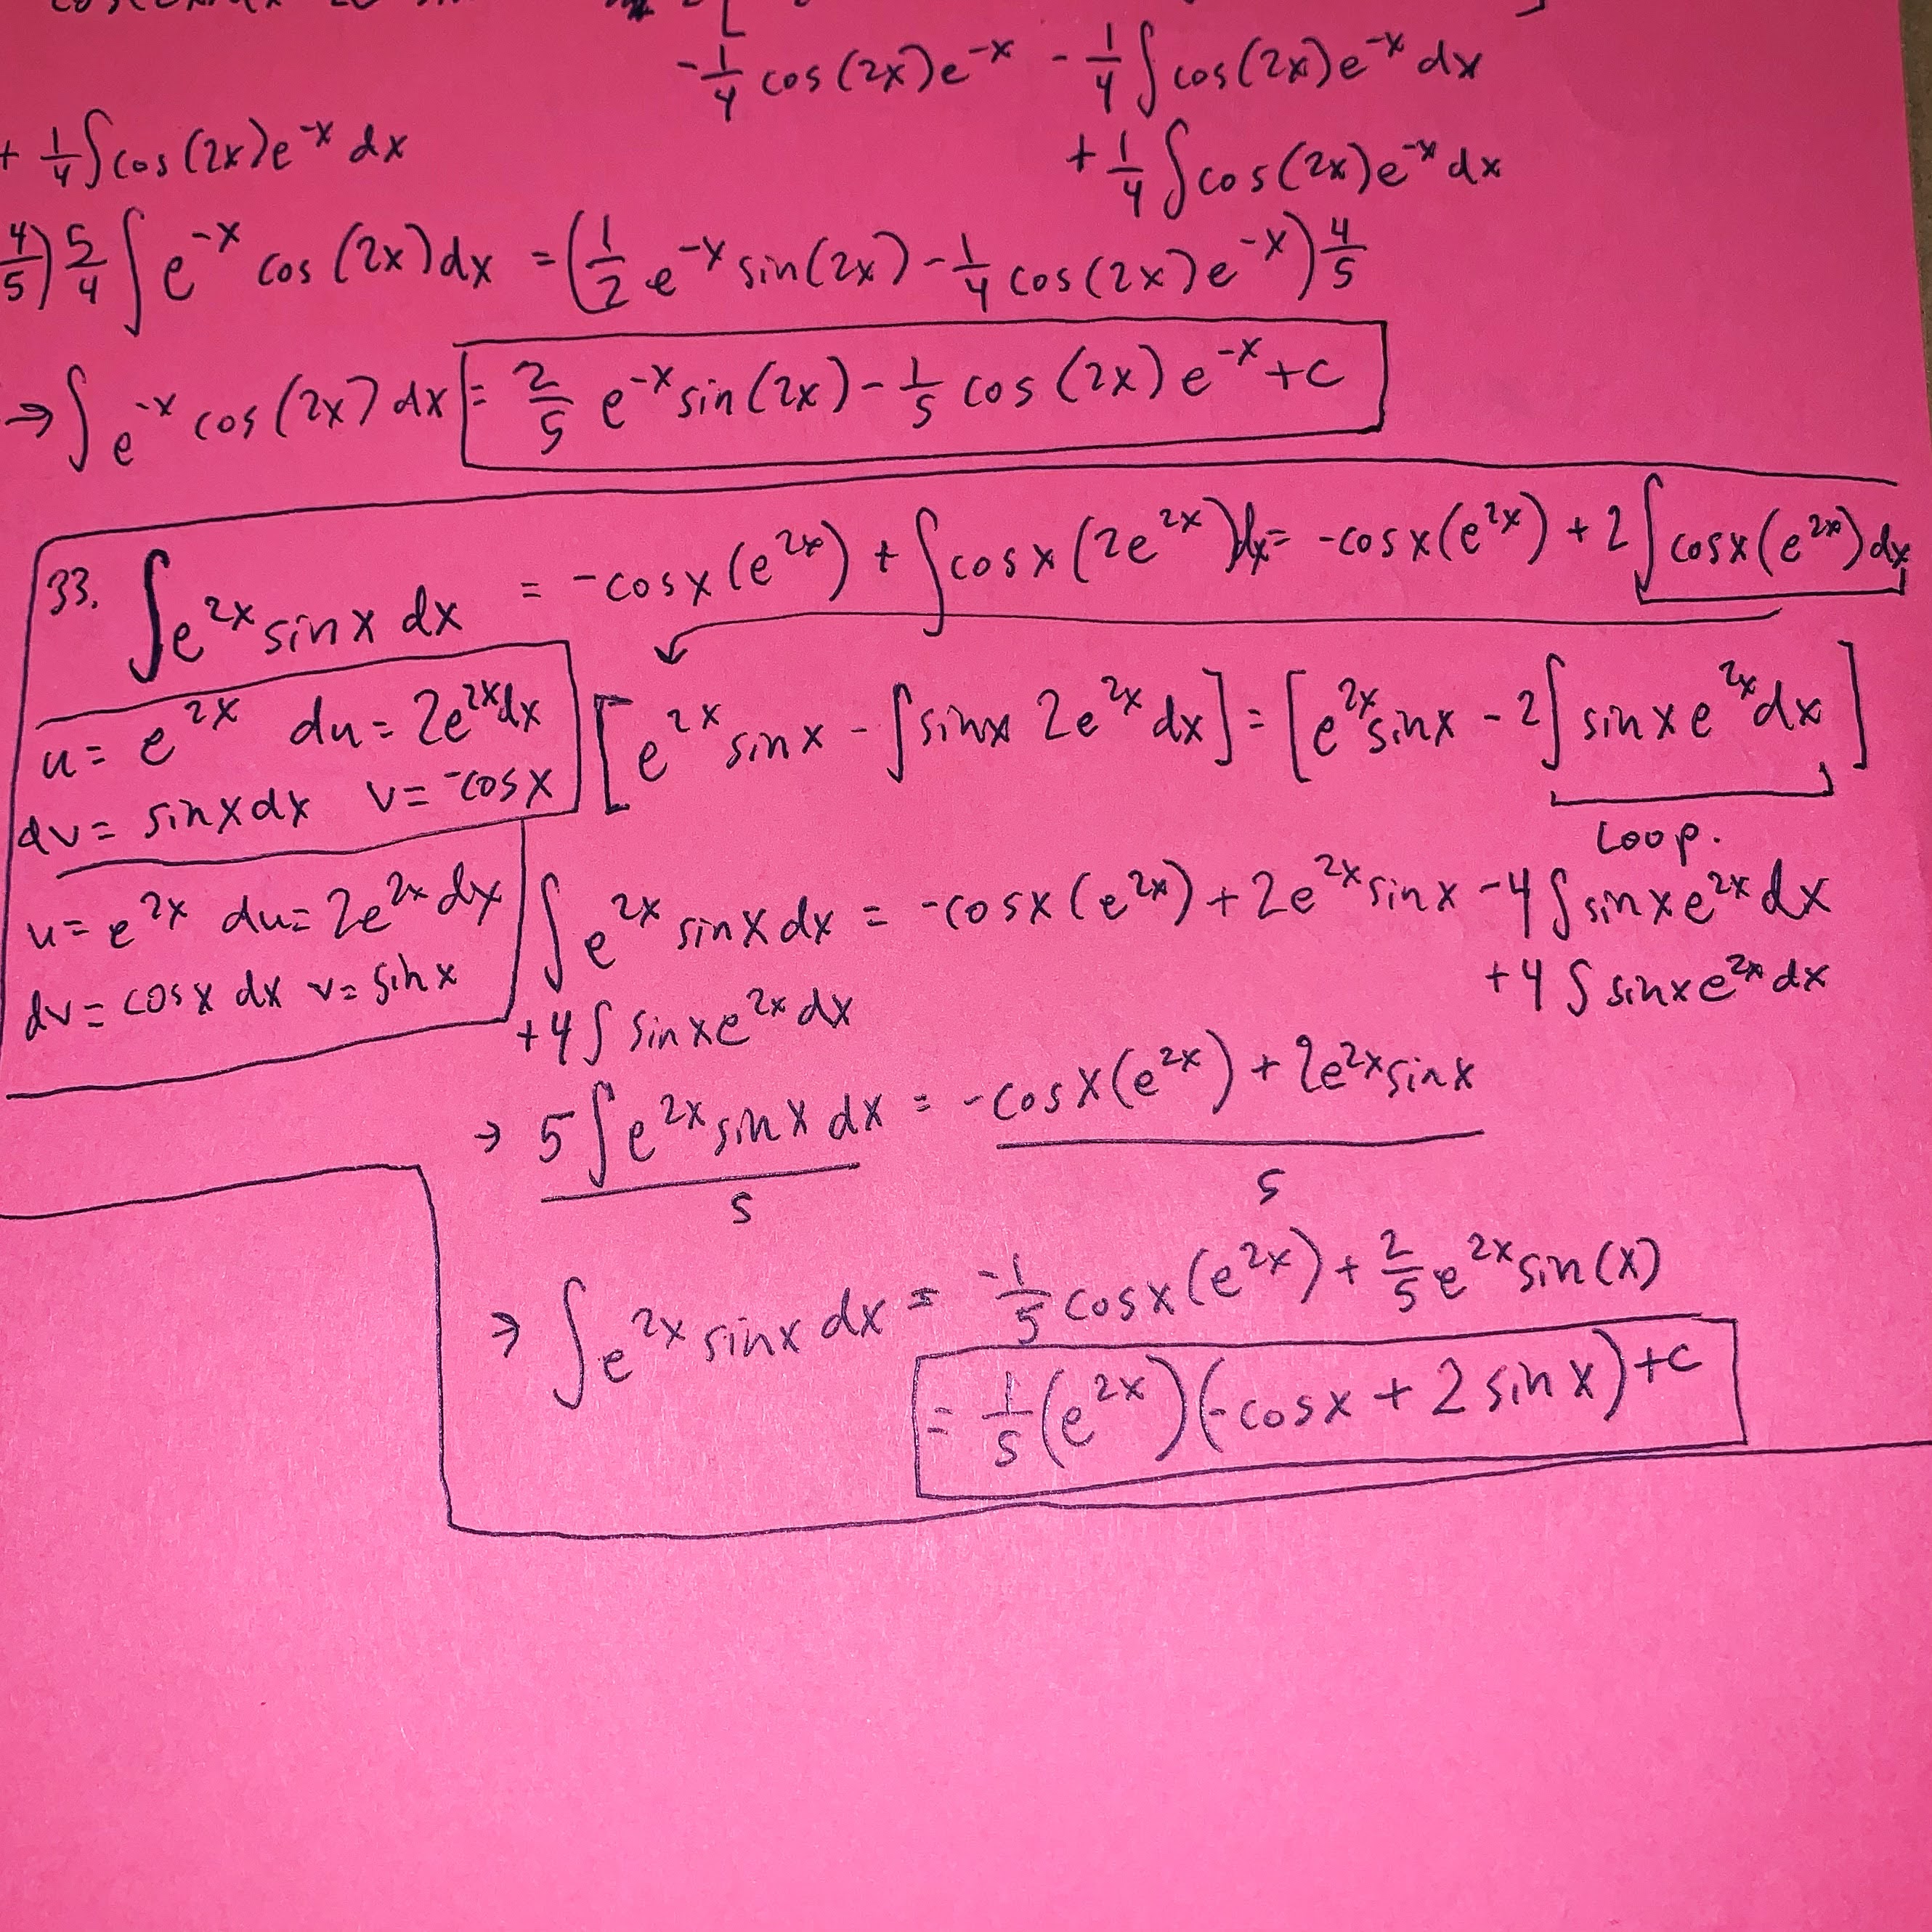 -1/4 cos(2x)e^-x - 1/4 ∫cos(2x)e^-x dx
+ 1/4 ∫cos(2x)e^-x dx + 1/4 ∫cos(2x)e^-x dx
4/5) 5/4 ∫ e^-x cos(2x)dx = (1/2 e^-x sin(2x) - 1/4 cos(2x)e^-x) 4/5
→ ∫e^-x cos(2x)dx = 2/5 e^-x sin(2x) - 1/5 cos(2x)e^-x + c
33. ∫e^2x sinx dx = -cosx(e^2x) + ∫cosx(2e^2x)dx = -cosx(e^2x) + 2∫cosx(e^2x)dx
u = e^2x du = 2e^2x dx
dv = sinxdx v = -cosx
[e^2x sinx - ∫sinx 2e^2x dx] = [e^2x sinx - 2∫sinxe^2x dx]
Loop.
u = e^2x du = 2e^2x dx
dv = cosx dx v = sinx
∫e^2x sinxdx = -cosx(e^2x) + 2e^2x sinx - 4∫sinxe^2x dx
+4∫sinxe^2x dx +4∫sinxe^2x dx
→ 5∫e^2x sinxdx = -cosx(e^2x) + 2e^2x sinx
5 5
→ ∫e^2x sinxdx = -1/5 cosx(e^2x) + 2/5 e^2x sin(x)
= 1/5 (e^2x)(-cosx + 2sinx) + c